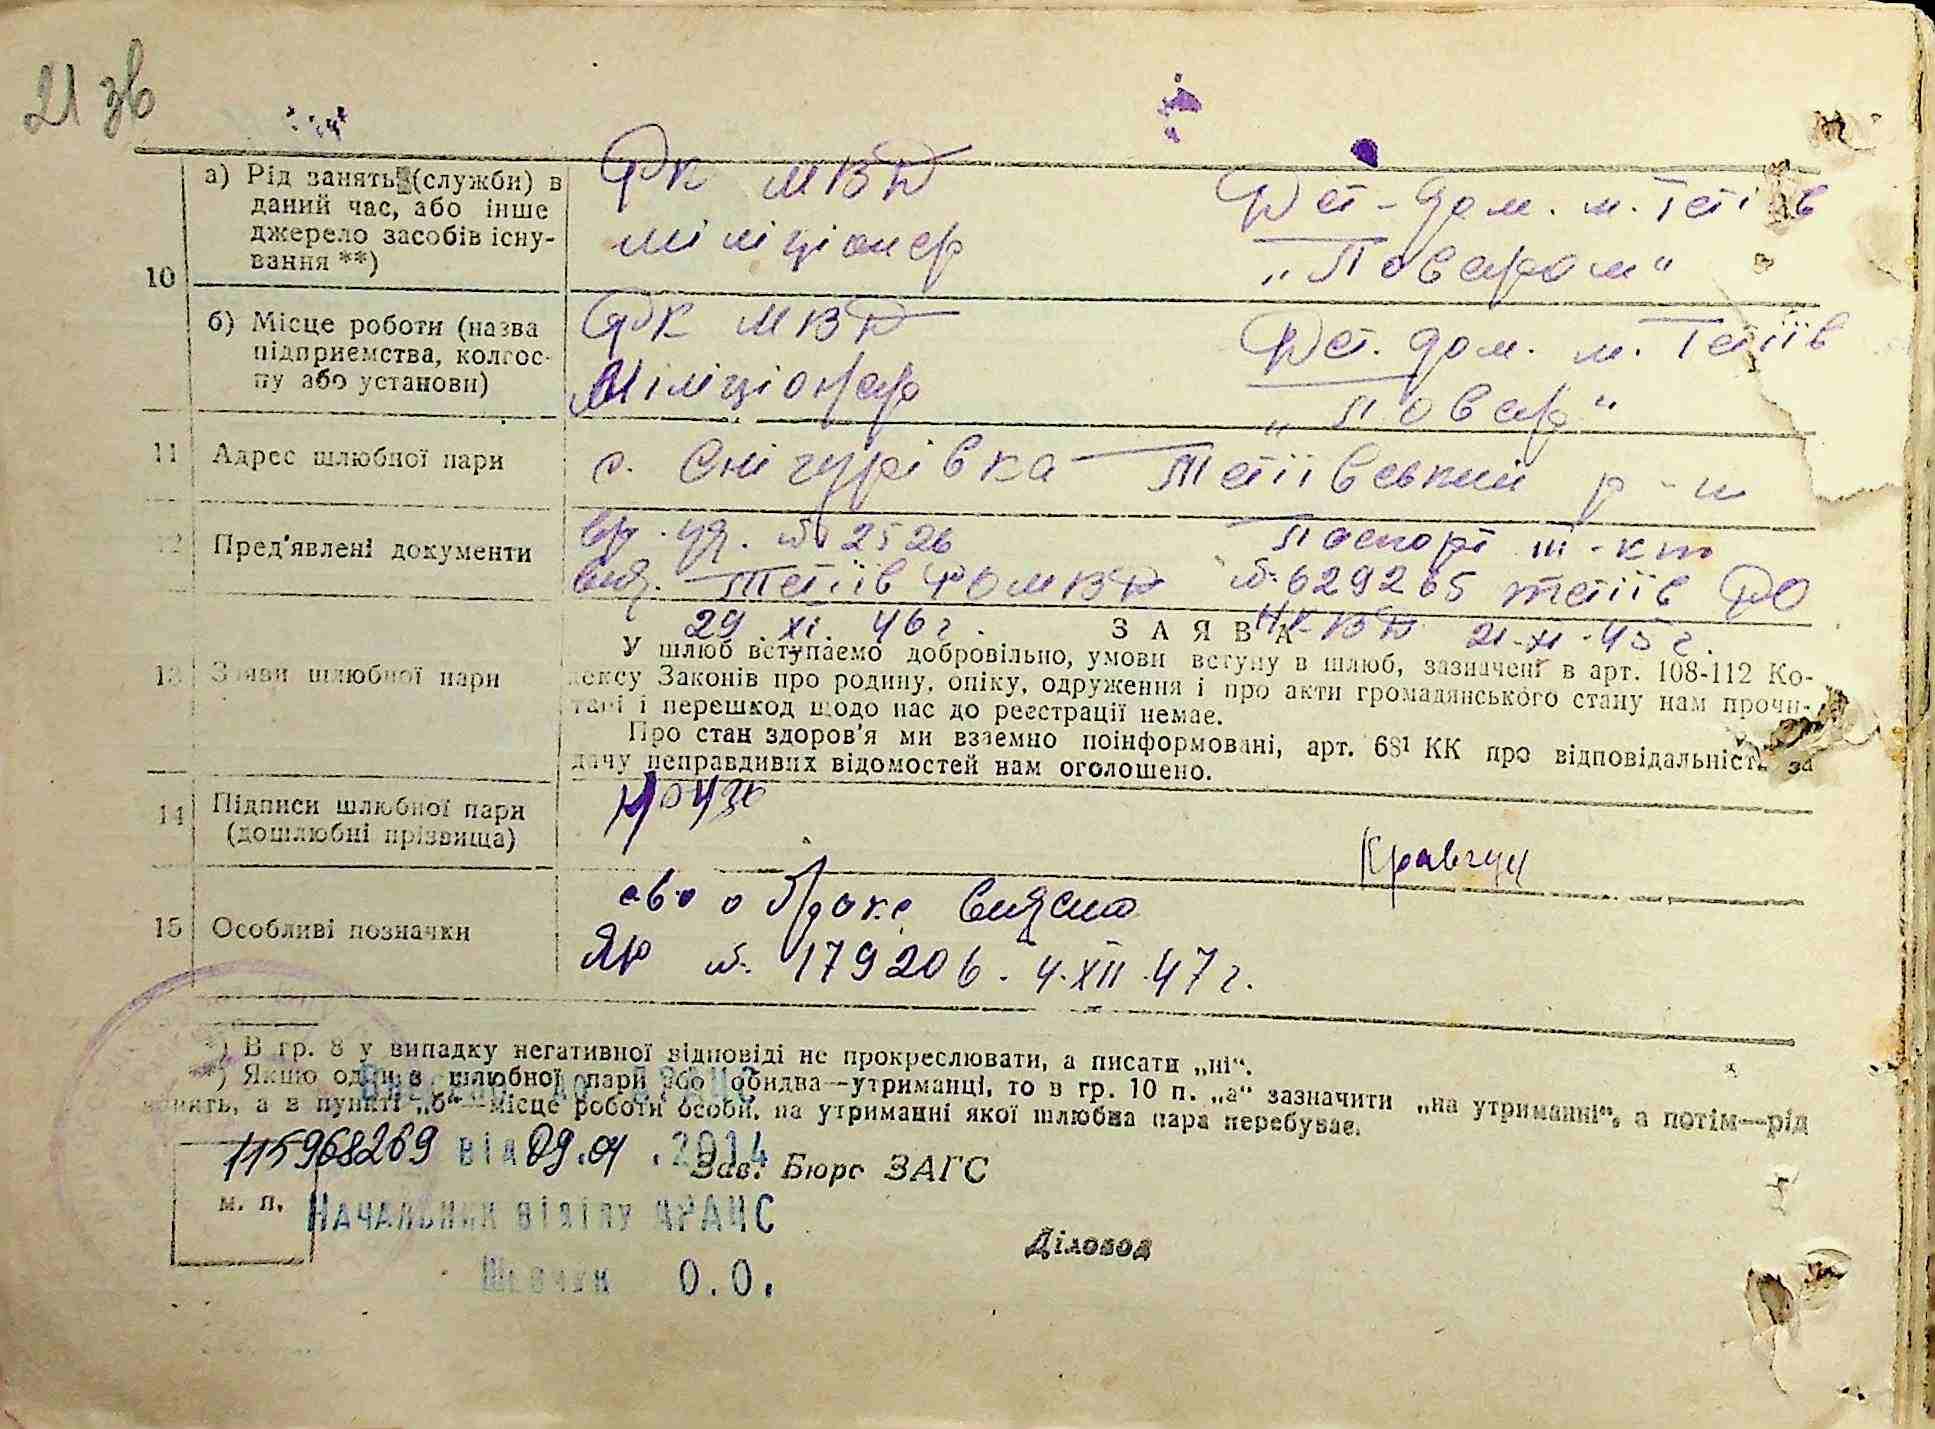 21 зв
10
а) Рід занять (служби) в
даний час, або інше
джерело засобів існу-
вання **)
РК МВД
міліціонер
Дет-дом. м. Тетіїв
„Поваром“
б) Місце роботи (назва
підприємства, колгос-
пу або установи)
РК МВД
Міліціонер
Дет. дом. м. Тетіїв
„повар“
11 Адрес шлюбної пари
с. Снігурівка Тетіївський р-н
12 Пред'явлені документи
вр. уд. № 2526
вид. Тетіїв РО МВД
29.XI.46 г.
Паспорт
№ 629265 Тетіїв РО
НКВД 21-XI-45 г.
13 Заяви шлюбної пари
ЗАЯВКА
У шлюб вступаємо добровільно, умови вступу в шлюб, зазначені в арт. 108-112 Ко-
дексу Законів про родину, опіку, одруження і про акти громадянського стану нам прочи-
тані і перешкод щодо нас до реєстрації немає.
Про стан здоров'я ми взаємно поінформовані, арт. 68¹ КК про відповідальність за
дачу неправдивих відомостей нам оголошено.
14 Підписи шлюбної пари
(дошлюбні прізвища)
Кравчук
15 Особливі позначки
о браке
ЯР № 179206. 4.XII.47 г.
*) В гр. 8 у випадку негативної відповіді не прокреслювати, а писати „ні“.
**) Якшо один з шлюбної пари або обидва—утриманці, то в гр. 10 п. „а“ зазначити „на утриманні“, а потім—рід
занять, а в пункті „б“—місце роботи особи, на утриманні якої шлюбна пара перебуває.
Внесено до ДРАЦС
115968269 від 09.01.2014
Зав. Бюро ЗАГС
м. п.
Начальник відділу ДРАЦС
Діловод
Шевчук О.О.